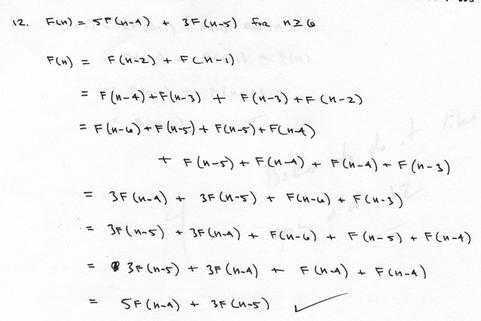 12. F(n) = 5F(n-4) + 3F(n-5) for n ≥ 6
F(n) = F(n-2) + F(n-1)
= F(n-4) + F(n-3) + F(n-3) + F(n-2)
= F(n-6) + F(n-5) + F(n-5) + F(n-4)
+ F(n-5) + F(n-4) + F(n-4) + F(n-3)
= 3F(n-4) + 3F(n-5) + F(n-6) + F(n-3)
= 3F(n-5) + 3F(n-4) + F(n-6) + F(n-5) + F(n-4)
= 3F(n-5) + 3F(n-4) + F(n-4) + F(n-4)
= 5F(n-4) + 3F(n-5) ✓